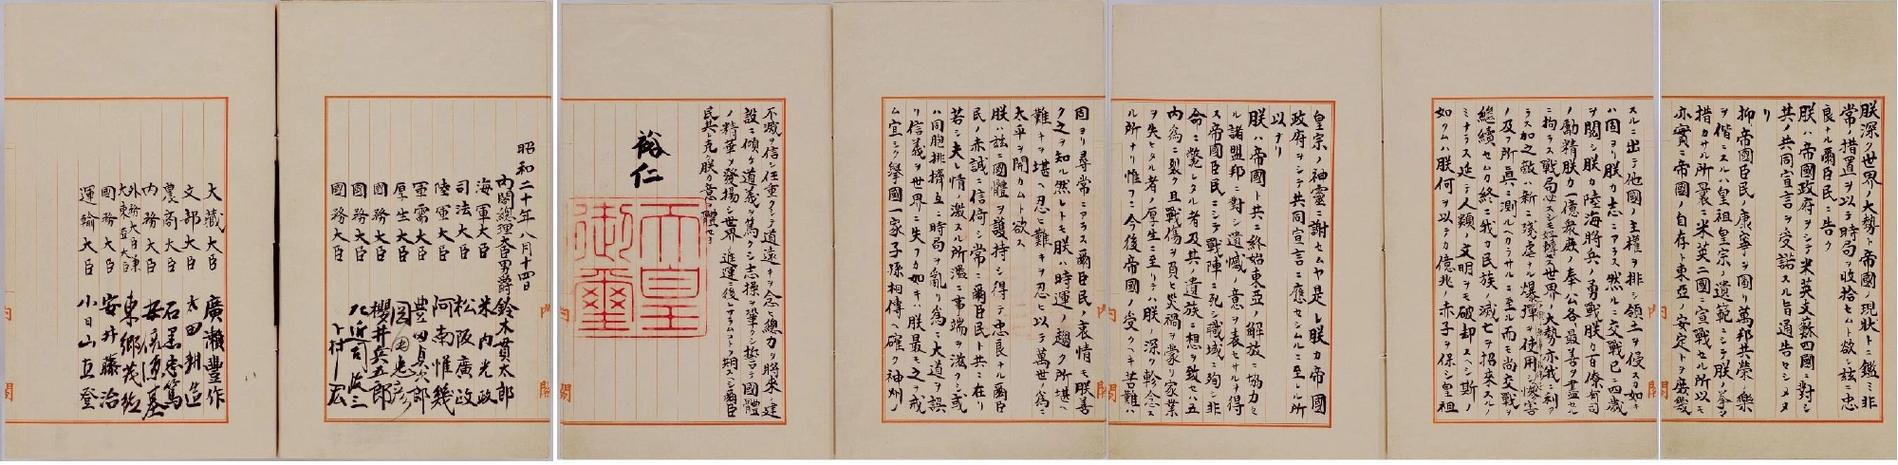 朕深ク世界ノ大勢ト帝國ノ現狀トニ鑑ミ非
常ノ措置ヲ以テ時局ヲ收拾セムト欲シ茲ニ忠
良ナル爾臣民ニ告ク
朕ハ帝國政府ヲシテ米英支蘇四國ニ對シ
其ノ共同宣言ヲ受諾スル旨通告セシメタ
リ
抑帝國臣民ノ康寧ヲ圖リ萬邦共榮ノ樂
ヲ偕ニスルハ皇祖皇宗ノ遺範ニシテ朕ノ拳々
措カサル所曩ニ米英二國ニ宣戰セル所以モ
亦實ニ帝國ノ自存ト東亞ノ安定トヲ庶幾
スルニ出テ他國ノ主權ヲ排シ領土ヲ侵スカ如キ
ハ固ヨリ朕カ志ニアラス然ルニ交戰已ニ四歲
ヲ閱シ朕カ陸海將兵ノ勇戰朕カ百僚有司
ノ勵精朕カ一億衆庶ノ奉公各最善ヲ盡セル
ニ拘ラス戰局必スシモ好轉セス世界ノ大勢亦我ニ利ア
ラス加之敵ハ新ニ殘虐ナル爆彈ヲ使用シ慘害
ノ及フ所眞ニ測ルヘカラサルニ至ル而モ尙交戰ヲ
繼續セムカ終ニ我カ民族ノ滅亡ヲ招來スルノ
ミナラス延テ人類ノ文明ヲモ破却スヘシ斯ノ
如クムハ朕何ヲ以テカ億兆ノ赤子ヲ保シ皇祖
皇宗ノ神靈ニ謝セムヤ是レ朕カ帝國
政府ヲシテ共同宣言ニ應セシムルニ至レル所
以ナリ
朕ハ帝國ト共ニ終始東亞ノ解放ニ協力セ
ル諸盟邦ニ對シ遺憾ノ意ヲ表セサルヲ得
ス帝國臣民ニシテ戰陣ニ死シ職域ニ殉シ非
命ニ斃レタル者及其ノ遺族ニ想ヲ致セハ五
內爲ニ裂ク且戰傷ヲ負ヒ災禍ヲ蒙リ家業
ヲ失ヒタル者ノ厚生ニ至リテハ朕ノ深ク軫念ス
ル所ナリ惟フニ今後帝國ノ受クヘキ苦難ハ
固ヨリ尋常ニアラス爾臣民ノ衷情モ朕善
ク之ヲ知ル然レトモ朕ハ時運ノ趨ク所堪ヘ
難キヲ堪ヘ忍ヒ難キヲ忍ヒ以テ萬世ノ爲ニ
太平ヲ開カムト欲ス
朕ハ茲ニ國體ヲ護持シ得テ忠良ナル爾臣
民ノ赤誠ニ信倚シ常ニ爾臣民ト共ニ在リ
若シ夫レ情ノ激スル所濫ニ事端ヲ滋クシ或
ハ同胞排擠互ニ時局ヲ亂リ爲ニ大道ヲ誤
リ信義ヲ世界ニ失フカ如キハ朕最モ之ヲ戒
ム宜シク擧國一家子孫相傳ヘ確ク神州ノ
不滅ヲ信シ任重クシテ道遠キヲ念ヒ總力ヲ將來ノ建
設ニ傾ケ道義ヲ篤クシ志操ヲ鞏クシ誓テ國體
ノ精華ヲ發揚シ世界ノ進運ニ後レサラムコトヲ期スヘシ爾臣
民其レ克ク朕カ意ヲ體セヨ
裕仁
天皇
御璽
昭和二十年八月十四日
內閣總理大臣男爵 鈴木貫太郎
海軍大臣 米內光政
司法大臣 松阪廣政
陸軍大臣 阿南惟幾
軍需大臣 豊田貞次郎
厚生大臣 岡田忠彥
國務大臣 櫻井兵五郎
國務大臣 左近司政三
國務大臣 下村宏
大藏大臣 廣瀨豐作
文部大臣 太田耕造
農商大臣 石黑忠篤
內務大臣 安倍源基
外務大臣兼
大東亞大臣 東鄕茂德
國務大臣 安井藤治
運輸大臣 小日山直登
內閣